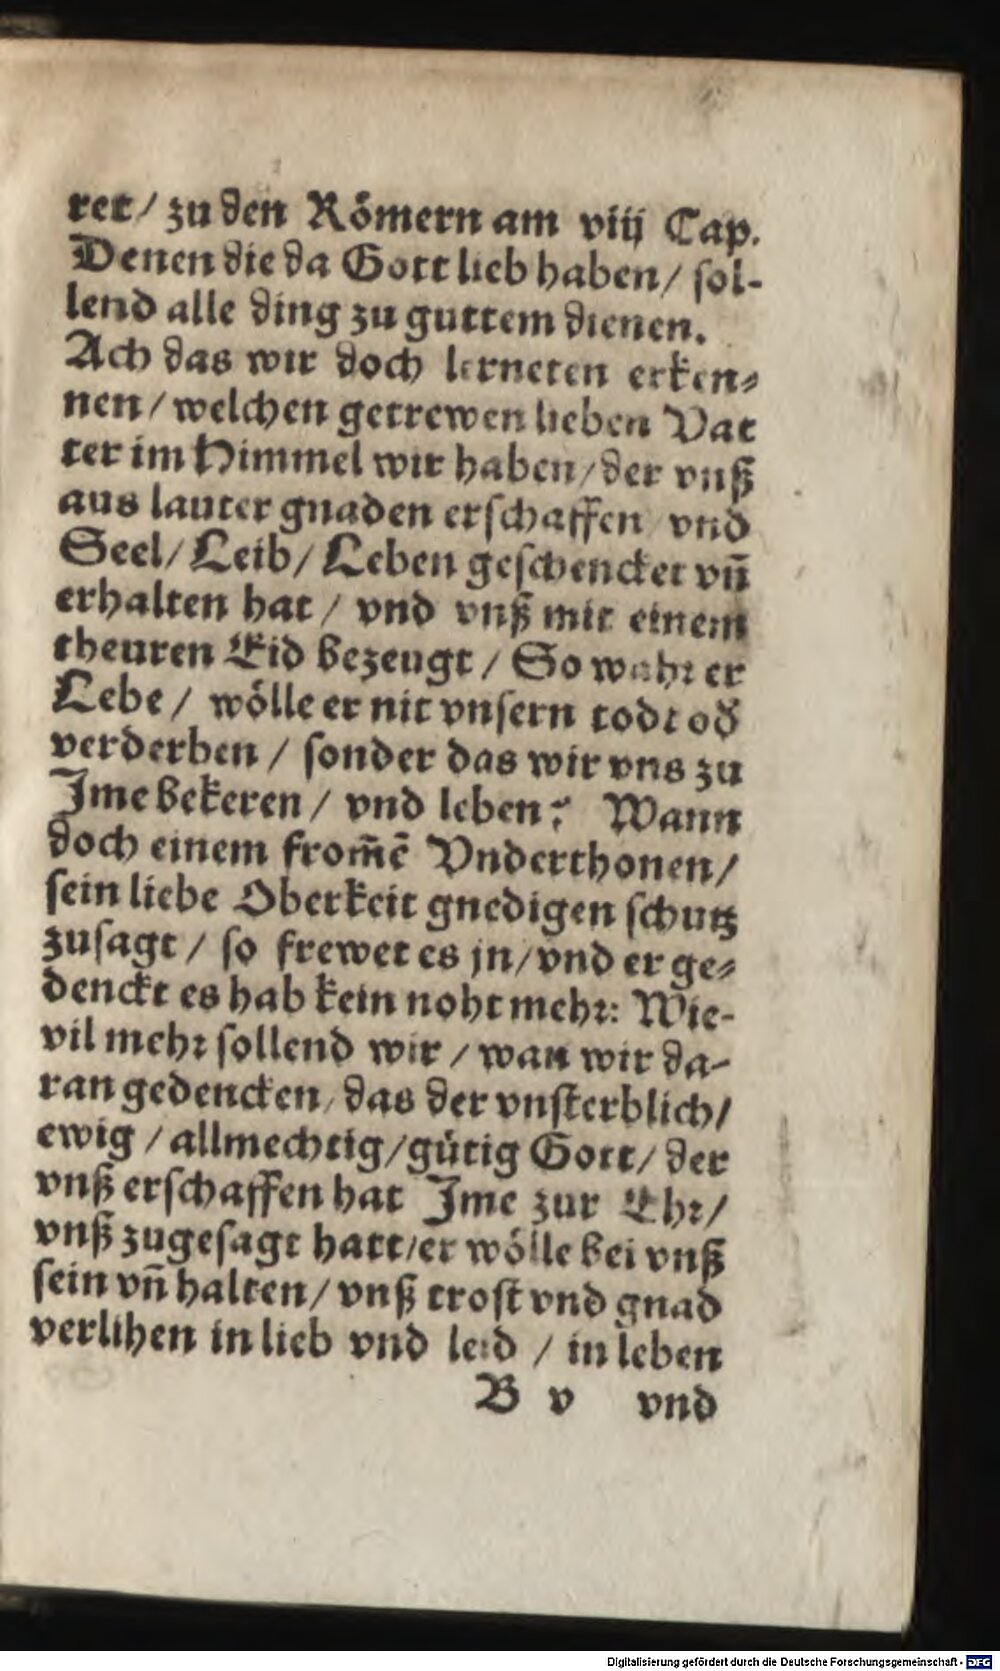 ret/ zu den Römern am viij Cap.
Denen die da Gott lieb haben/ sol-
lend alle ding zu guttem dienen.
Ach das wir doch lerneten erken-
nen/ welchen getrewen lieben Vat
ter im Himmel wir haben/ der vnß
aus lauter gnaden erschaffen vnd
Seel/ Leib/ Leben geschencket vn̄
erhalten hat/ vnd vnß mit einem
theuren Eid bezeugt/ So wahr er
Lebe/ wölle er nit vnsern todt od̄
verderben/ sonder das wir vns zu
Ime bekeren/ vnd leben: Wann
doch einem from̄ē Vnderthonen/
sein liebe Oberkeit gnedigen schutz
zusagt/ so frewet es jn/ vnd er ge-
denckt es hab kein noht mehr: Wie-
vil mehr sollend wir/ wan wir da-
ran gedencken/ das der vnsterblich/
ewig/ allmechtig/ gütig Gott/ der
vnß erschaffen hat Ime zur Ehr/
vnß zugesagt hatt/ er wölle bei vnß
sein vn̄ halten/ vnß trost vnd gnad
verlihen in lieb vnd leid/ in leben
B v vnd
Digitalisierung gefördert durch die Deutsche Forschungsgemeinschaft - DFG